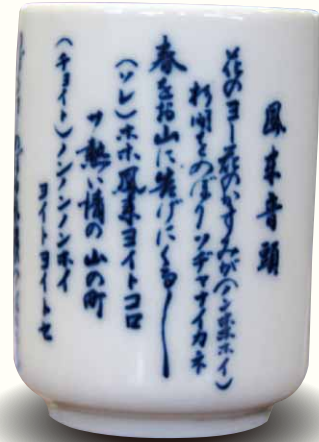 鳳来音頭
花のヨー花のかすみが(ハン来ホイ)
朝開とのぼりソヂャナイカネ
春をお山に告げにくるー
(ソレ)ホホ鳳来ヨイトコロ
サ熱い情の山の町
(チョイト)ノンノンノンホイ
ヨイトヨイトセ